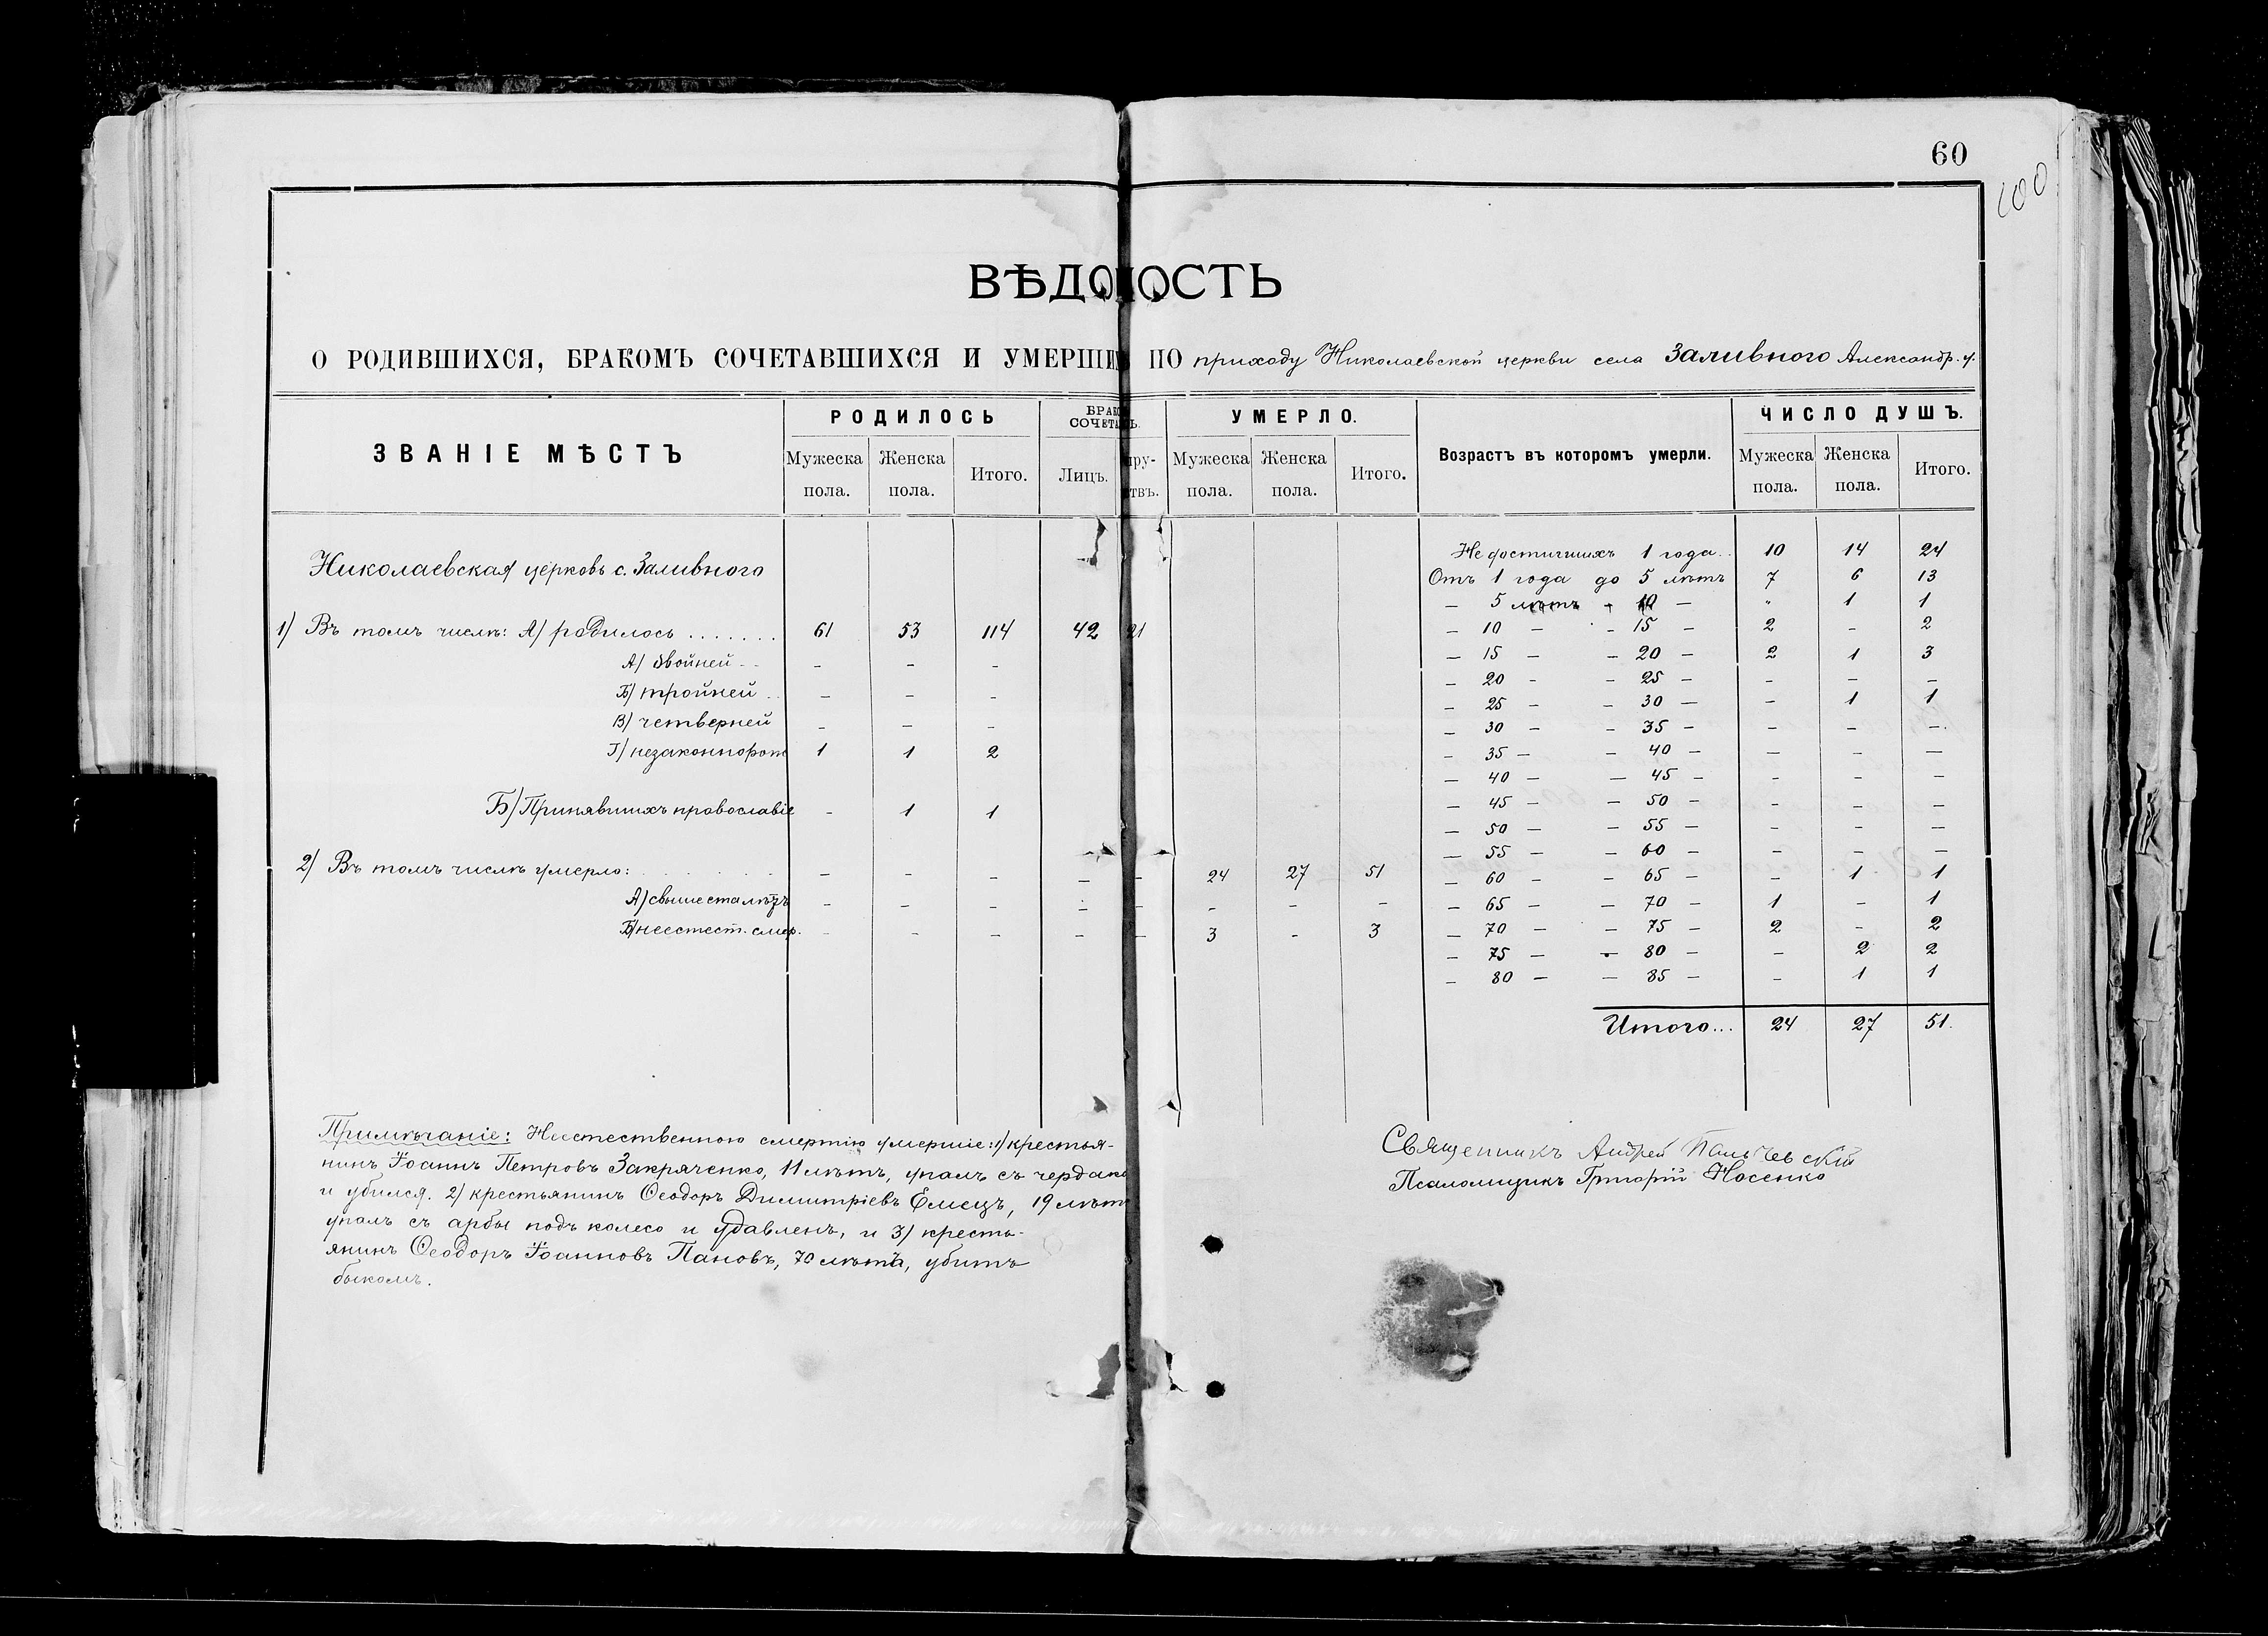 60
100
ВѢДОМОСТЬ
О РОДИВШИХСЯ, БРАКОМЪ СОЧЕТАВШИХСЯ И УМЕРШИХЪ ПО приходу Николаевской церкви села Заливного Александр. у.
ЗВАНІЕ МѢСТЪ
РОДИЛОСЬ
Мужеска пола.
Женска пола.
Итого.
СОЧЕТ
Лицъ.
УМЕРЛО.
Мужеска пола.
Женска пола.
Итого.
Возрастъ въ которомъ умерли.
ЧИСЛО ДУШЪ.
Мужеска пола.
Женска пола.
Итого.
Николаевская церковь с. Заливного
1) Въ томъ числѣ: А) родилось ....... 61 53 114 42 21
А) двойней - - -
Б) тройней - - -
В) четверней - - -
Г) незаконнорож 1 1 2
Б) Принявшихъ православіе - 1 1
2) Въ томъ числѣ умерло: - - - - - 24 27 51
А) свыше ста лѣтъ - - - - - - - -
Б) неестест. смер. - - - - - 3 - 3
Не достигшихъ 1 года.. 10 14 24
Отъ 1 года до 5 лѣтъ 7 6 13
- 5 лѣтъ - 10 - " 1 1
- 10 - - 15 - 2 - 2
- 15 - - 20 - 2 1 3
- 20 - - 25 - - - -
- 25 - - 30 - - 1 1
- 30 - - 35 - - - -
- 35 - - 40 - - - -
- 40 - - 45 - - - -
- 45 - - 50 - - - -
- 50 - - 55 - - - -
- 55 - - 60 - - - -
- 60 - - 65 - - 1 1
- 65 - - 70 - 1 - 1
- 70 - - 75 - 2 - 2
- 75 - - 80 - - 2 2
- 80 - - 85 - - 1 1
Итого... 24 27 51.
Примѣчаніе: Неестественною смертію умершіе: 1) крестья-
нинъ Іоаннъ Петровъ Закряченко, 11 лѣтъ, упалъ съ чердака
и убился. 2) крестьянинъ Ѳеодоръ Димитріевъ Емецъ, 19 лѣтъ
упалъ съ арбы подъ колесо и удавленъ, и 3) кресть-
янинъ Ѳеодоръ Іоанновъ Пановъ, 70 лѣтъ, убитъ
быкомъ.
Священникъ Андрей
Псаломщикъ Григорій Носенко